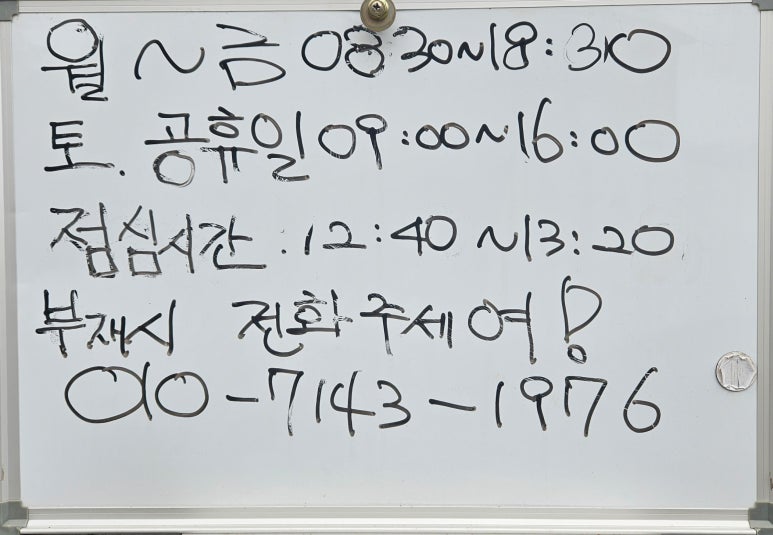 월~금 08:30~18:30
토. 공휴일 09:00~16:00
점심시간. 12:40~13:20
부재시 전화주세여!
010-7143-1976